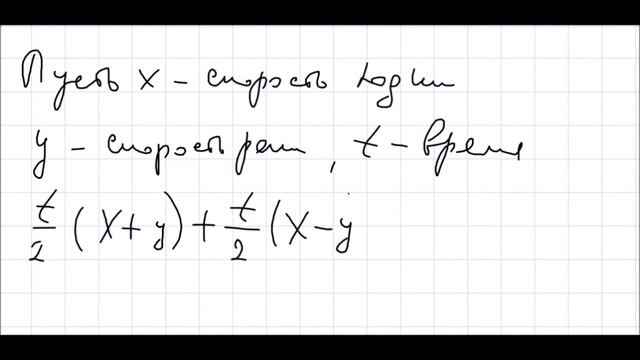 Пусть x – скорость лодки
y – скорость реки, t – время
t/2 (x+y) + t/2 (x-y